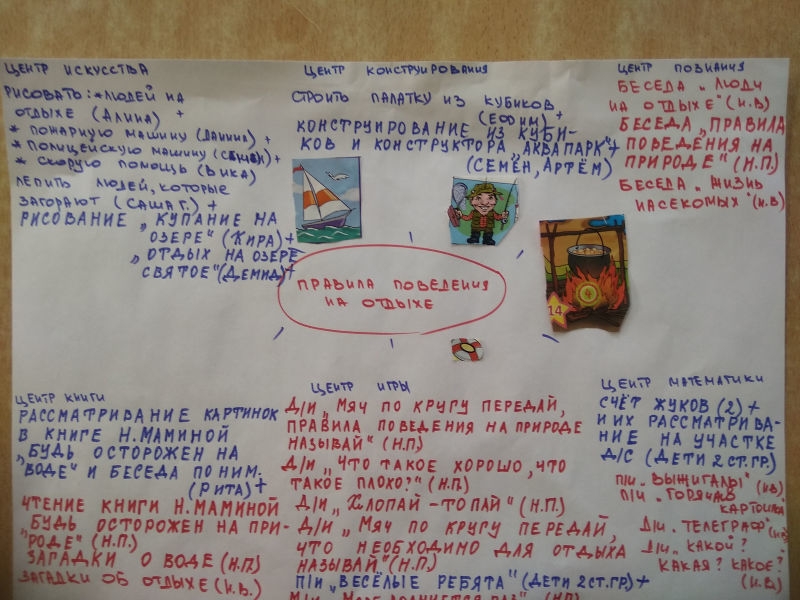 ЦЕНТР ИСКУССТВА
РИСОВАТЬ: *ЛЮДЕЙ НА
ОТДЫХЕ (АЛИНА) +
* ПОЖАРНУЮ МАШИНУ (ДАНИИЛ) +
* ПОЛИЦЕЙСКУЮ МАШИНУ (СЕМЁН) +
* СКОРУЮ ПОМОЩЬ (ВИКА)
ЛЕПИТЬ ЛЮДЕЙ, КОТОРЫЕ
ЗАГОРАЮТ (САША Г.) +
РИСОВАНИЕ „КУПАНИЕ НА
ОЗЕРЕ" (КИРА) +
„ОТДЫХ НА ОЗЕРЕ
СВЯТОЕ" (ДЕМИД) +
ЦЕНТР КОНСТРУИРОВАНИЯ
СТРОИТЬ ПАЛАТКУ ИЗ КУБИКОВ
(ЕФИМ) +
КОНСТРУИРОВАНИЕ ИЗ КУБИ-
КОВ И КОНСТРУКТОРА „АКВАПАРК" +
(СЕМЁН, АРТЁМ)
ЦЕНТР ПОЗНАНИЯ
БЕСЕДА „ЛЮДИ
НА ОТДЫХЕ" (И.В)
БЕСЕДА „ПРАВИЛА
ПОВЕДЕНИЯ НА
ПРИРОДЕ" (Н.П.)
БЕСЕДА „ЖИЗНЬ
НАСЕКОМЫХ" (И.В)
ПРАВИЛА ПОВЕДЕНИЯ
НА ОТДЫХЕ
14
4
ЦЕНТР КНИГИ
РАССМАТРИВАНИЕ КАРТИНОК
В КНИГЕ Н.МАМИНОЙ
„БУДЬ ОСТОРОЖЕН НА
ВОДЕ" И БЕСЕДА ПО НИМ.
(РИТА) +
ЧТЕНИЕ КНИГИ Н.МАМИНОЙ
„БУДЬ ОСТОРОЖЕН НА ПРИ-
РОДЕ" (Н.П.)
ЗАГАДКИ О ВОДЕ (Н.П)
ЗАГАДКИ ОБ ОТДЫХЕ (И.В.)
ЦЕНТР ИГРЫ
Д/И „МЯЧ ПО КРУГУ ПЕРЕДАЙ,
ПРАВИЛА ПОВЕДЕНИЯ НА ПРИРОДЕ
НАЗЫВАЙ" (Н.П)
Д/И „ЧТО ТАКОЕ ХОРОШО, ЧТО
ТАКОЕ ПЛОХО?" (Н.П.)
Д/И „ХЛОПАЙ-ТОПАЙ" (Н.П.)
Д/И „МЯЧ ПО КРУГУ ПЕРЕДАЙ,
ЧТО НЕОБХОДИМО ДЛЯ ОТДЫХА
НАЗЫВАЙ" (Н.П)
П/И „ВЕСЁЛЫЕ РЕБЯТА" (ДЕТИ 2 СТ.ГР) +
ЦЕНТР МАТЕМАТИКИ
СЧЁТ ЖУКОВ (2) +
И ИХ РАССМАТРИВА-
НИЕ НА УЧАСТКЕ
Д/С (ДЕТИ 2 СТ.ГР.)
П/И „ВЫЖИГАЛЫ" (И.В)
П/И „ГОРЯЧАЯ
КАРТОШКА"
Д/И „ТЕЛЕГРАФ" (И.В)
Д/И „КАКОЙ?
КАКАЯ? КАКОЕ?"
(И.В)